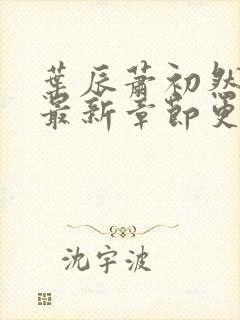 叶辰萧初然
最新章節更
沈宇波